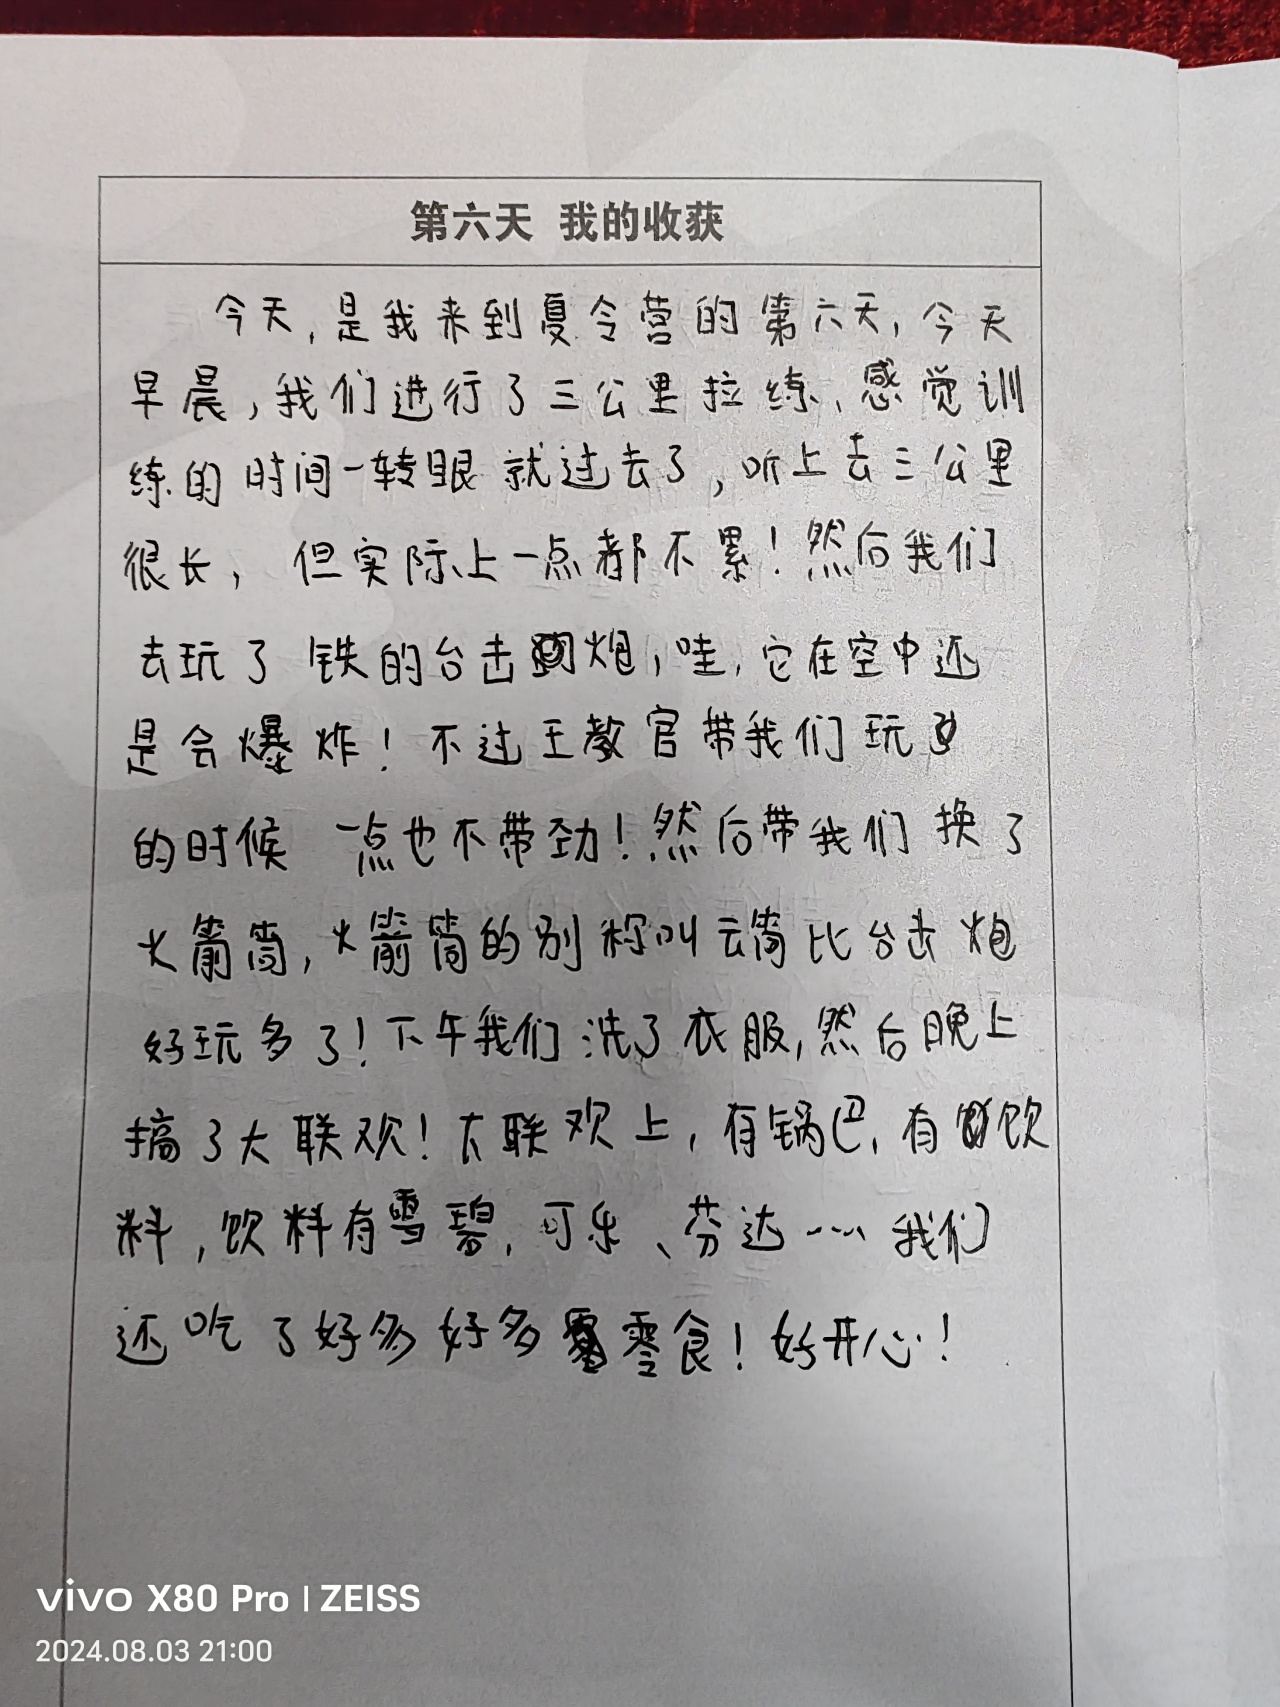 第六天 我的收获
今天,是我来到夏令营的第六天,今天
早晨,我们进行了三公里拉练,感觉训
练的时间一转眼就过去了,听上去三公里
很长,但实际上一点都不累!然后我们
去玩了铁的台击炮,哇,它在空中还
是会爆炸!不过王教官带我们玩
的时候一点也不带劲!然后带我们换了
火箭筒,火箭筒的别称叫云筒比台击炮
好玩多了!下午我们洗了衣服,然后晚上
搞了大联欢!大联欢上,有锅巴,有饮
料,饮料有雪碧,可乐、芬达……我们
还吃了好多好多零食!好开心!
vivo X80 Pro | ZEISS
2024.08.03 21:00